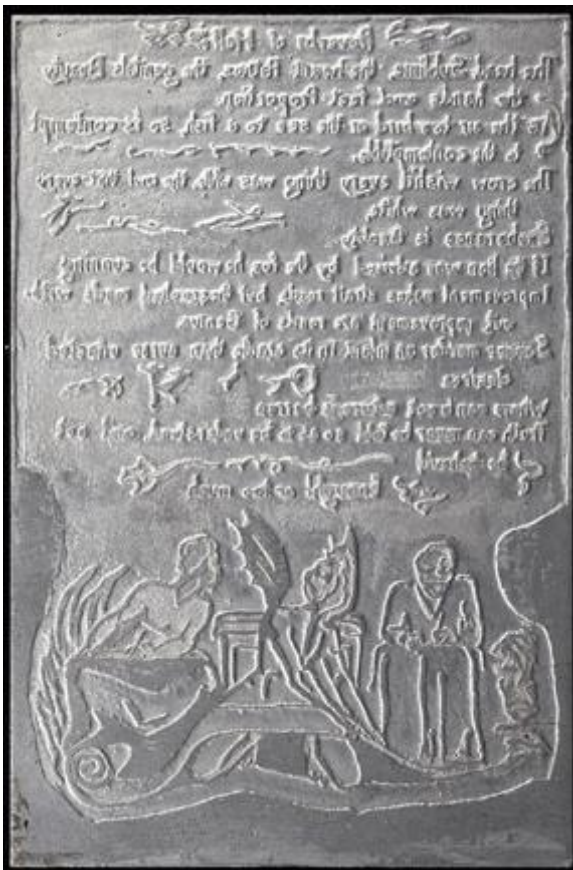 Proverbs of Hell
The head Sublime, the heart Pathos, the genitals Beauty
the hands and feet Proportion.
As the air to a bird or the sea to a fish, so is contempt
to the contemptible.
The crow wish'd every thing was the owl that every
thing was white.
Exuberance is Beauty.
If the lion was advised by the fox he would be cunning.
Improvement makes strait roads, but the crooked roads with-
out Improvement are roads of Genius.
Sooner murder an infant in its cradle than nurse unacted
desires
Where man is not nature is barren
Truth can never be told so as to be understood, and not
be believ'd.
Enough! or Too much